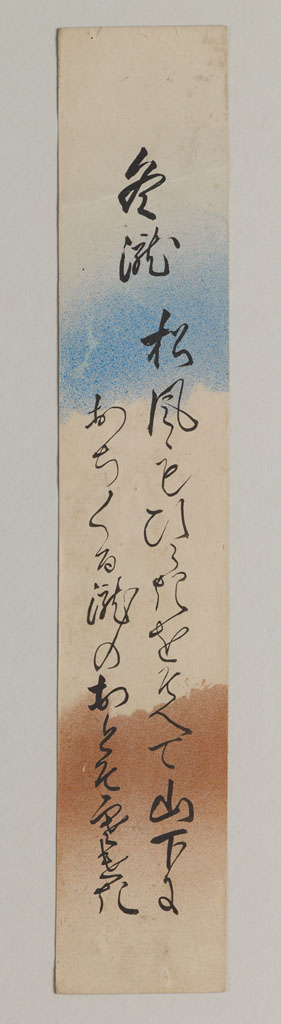 冬瀧
松風もひゞきをそへて山下に
おちくる瀧のおとそ